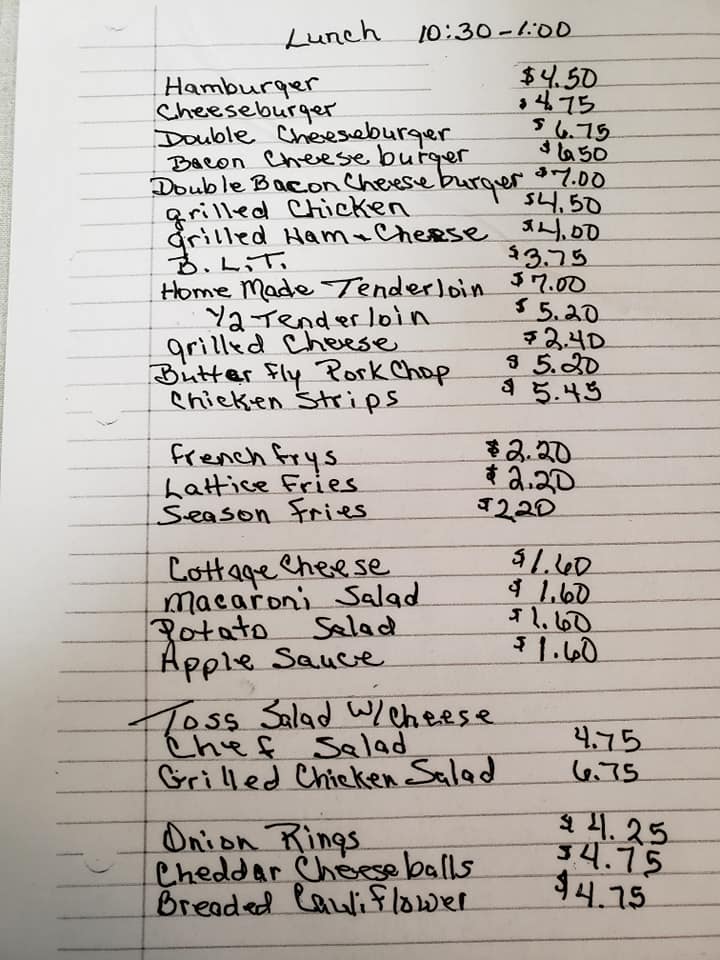 Lunch 10:30-1:00
Hamburger $4.50
Cheeseburger $4.75
Double Cheeseburger $6.75
Bacon Cheeseburger $6.50
Double Bacon Cheeseburger $7.00
grilled Chicken $4.50
grilled Ham + Cheese $4.00
B.L.T. $3.75
Home Made Tenderloin $7.00
1/2 Tenderloin $5.20
grilled Cheese $2.40
Butter fly Pork Chop $5.20
Chicken Strips $5.45
french frys $2.20
Lattice Fries $2.20
Season fries $2.20
Cottage Cheese $1.60
Macaroni Salad $1.60
Potato Salad $1.60
Apple Sauce $1.60
Toss Salad W/Cheese
Chef Salad 4.75
Grilled Chicken Salad 6.75
Onion Rings $4.25
Cheddar Cheese balls $4.75
Breaded Cauliflower $4.75